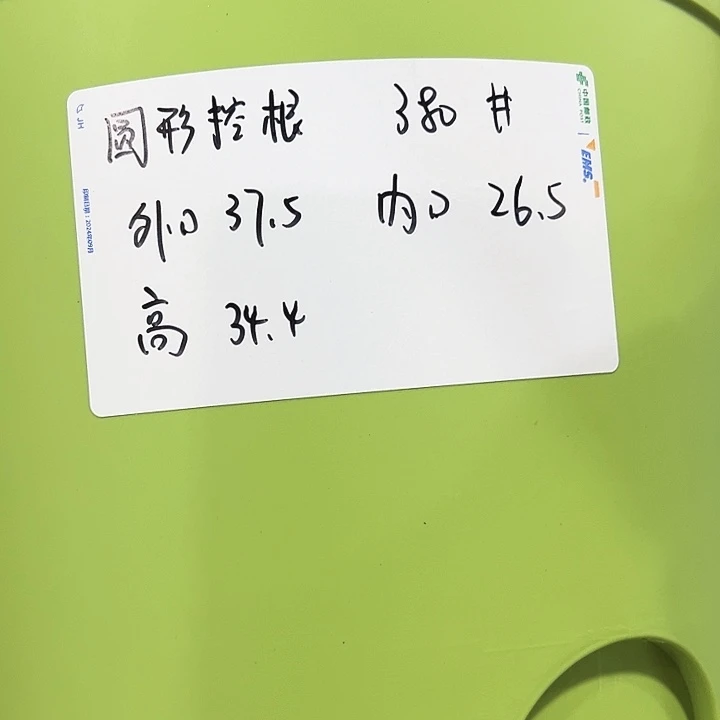 圆形控根 380 #
外口 37.5 内口 26.5
高 34.4
中国邮政
CHINA POST
EMS.
JH